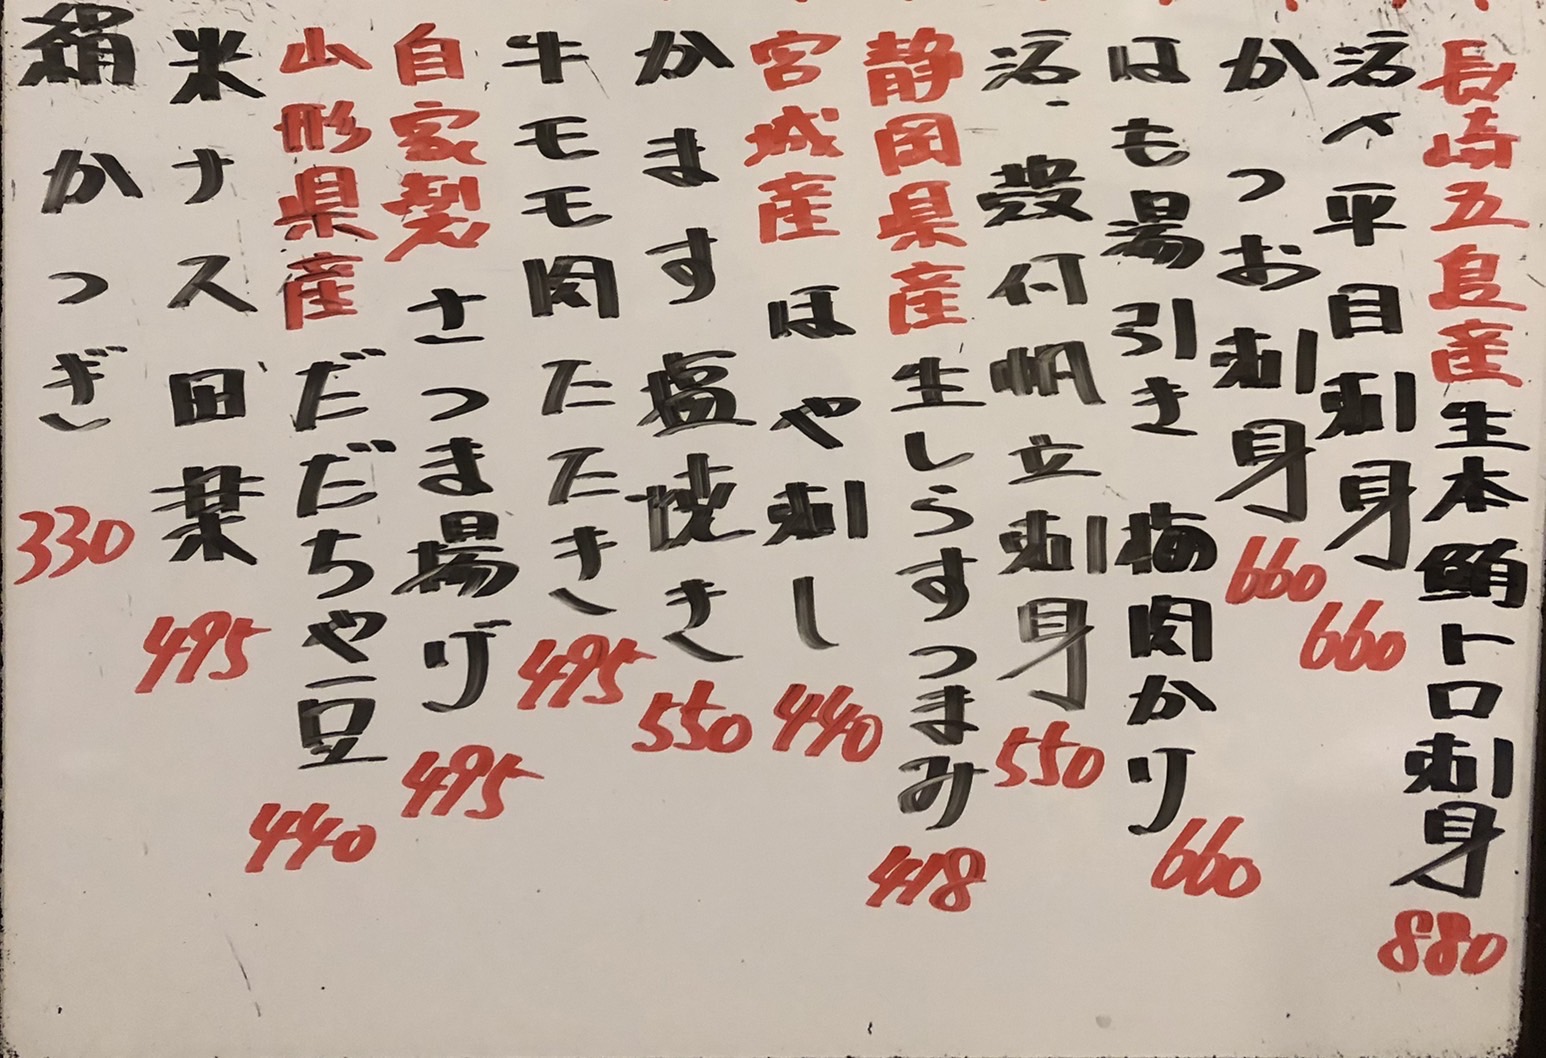 長崎五島産生本鮪トロ刺身 880
活〆平目刺身 660
かつお刺身 660
はも湯引き 梅肉かり 660
活・殻付帆立刺身 550
静岡県産生しらすつまみ 418
宮城産 ほや刺し 440
かます塩焼き 550
牛モモ肉たたき 495
自家製さつま揚げ 495
山形県産だだちや豆 440
米ナス田楽 495
絹かつぎ 330